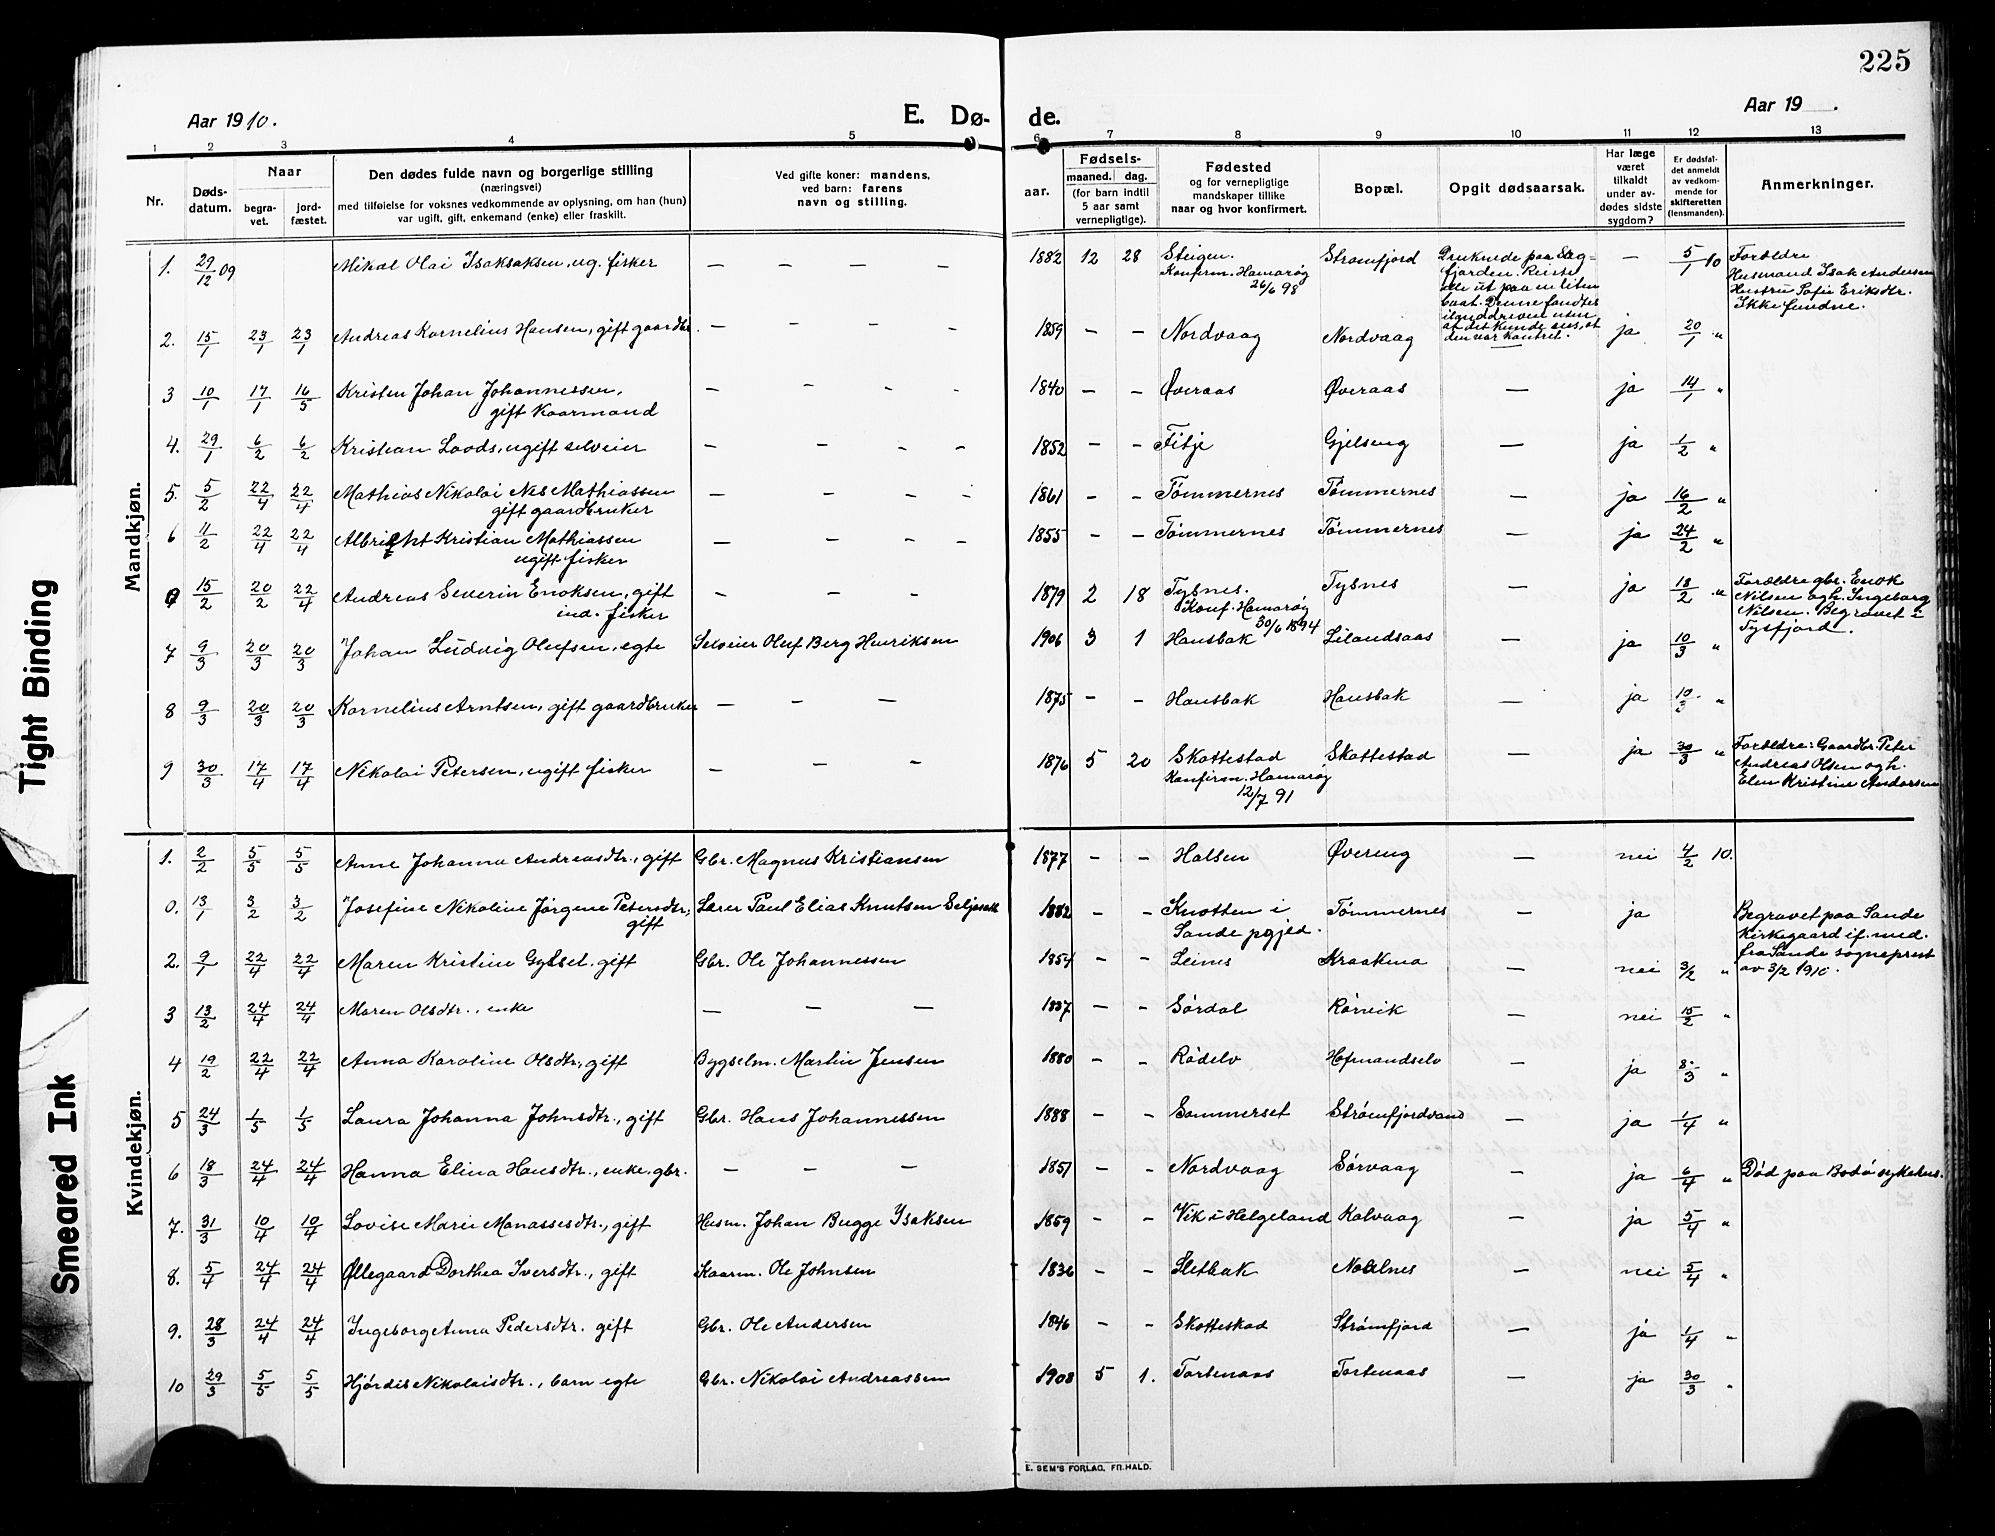 225
Aar 1910.
E. Dø-
de.
Aar 19 .
1 2 3 4 5 6 7 8 9 10 11 12 13
Nr.
Døds-
datum.
Naar
begra-
vet.
jord-
fæstet.
Den dødes fulde navn og borgerlige stilling
(næringsvei)
med tilføielse for voksnes vedkommende av oplysning, om han (hun)
var ugift, gift, enkemand (enke) eller fraskilt.
Ved gifte koner: mandens,
ved barn: farens
navn og stilling.
Fødsels-
aar.
maaned. dag.
(for barn indtil
5 aar samt
vernepligtige).
Fødested
og for vernepligtige
mandskaper tillike
naar og hvor konfirmert.
Bopæl.
Opgit dødsaarsak.
Har læge
været
tilkaldt
under av-
dødes sidste
sygdom?
Er dødsfal-
det anmeldt
av vedkom-
mende for
skifteretten
(lensmanden).
Anmerkninger.
Mandkjøn.
1. 29/12 09 Mikal Olai Isaksaksen, ug. fisker — — — — 1882 12 28 Steigen. Strømfjord Druknede paa Sag= — 5/1 10 Forældre
Konfirm. Hamarøy fjorden. Reiste Husmand Isak Andersen
26/6 98 alle ut paa en liten Hustru Sofie Eriksdtr.
baat. Denne fandtes Ikke fundne.
ilanddreven uten
at det kunde sees, at
den var kantret.
2. 15/1 23/1 23/1 Andreas Kornelius Hansen, gift gaardbr. — — — — 1859 — — Nordvaag Nordvaag — ja 20/1 "
3 10/1 17/1 16/5 Kristen Johan Johannessen, — — — — 1840 — — Øveraas Øveraas — ja 14/1 "
gift Kaarmand
4. 29/1 6/2 6/2 Kristian Loods, ugift selveier — — — — 1852 — — Fitje Gjelseng — ja 1/2 "
5. 5/2 22/4 22/4 Mathias Nikolai Nes Mathiassen — — — — 1861 — — Tømmernes Tømmernes — ja 16/2 "
gift gaardbruker
6 11/2 22/4 22/4 Albricht Kristian Mathiassen — — — — 1855 — — Tømmernes Tømmernes — ja 24/2 "
ugift fisker
0 15/2 20/2 22/4 Andreas Severin Enoksen, gift — — — 1879 2 18 Tysnes. Tysnes — ja 18/2 " Forældre gbr. Enok
ind. fisker Konf. Hamarøy Nilsen og h. Ingeborg
30/6 1894 Nilsen. Begravet i
Tysfjord.
7 9/3 20/3 20/3 Johan Ludvig Olufsen, egte Selveier Oluf Berg Henriksen 1906 3 1 Hansbak Lilandsaas — ja 10/3 "
8 9/3 20/3 20/3 Kornelius Arntsen, gift gaardbruker — — — 1875 — — Hansbak Hansbak — ja 10/3 "
9 30/3 17/4 17/4 Nikolai Petersen, ugift fisker — — — 1876 5 20 Skottestad Skottestad — ja 30/3 " Forældre: Gaardbr. Peter
Konfirm. Hamarøy Andreas Olsen og h.
12/7 91 Elen Kristine Andersen
Kvindekjøn.
1. 2/2 5/5 5/5 Anne Johanna Andreasdtr., gift Gbr. Magnus Kristiansen 1877 — — Halsen Øvereng — nei 4/2 10.
0. 13/1 3/2 3/2 Josefine Nikoline Jørgine Petersdtr, Lærer Paul Elias Knutsen 1882 — — Knotten i Tømmernes — ja Begravet paa Sande
gift Sande pgjed. Kirkegaard if. med.
fra Sande sogneprest
av 3/2 1910.
2. 9/1 22/4 22/4 Maren Kristine Gylset, gift Gbr. Ole Johannessen 1854 — — Leines Kraakmo — nei 3/2 "
3 13/2 24/4 24/4 Maren Olsdtr., enke — — — 1837 — — Sørdal Rørvik — nei 15/2 "
4 19/2 22/4 22/4 Anna Karoline Olsdtr, gift Bygselm. Martin Jensen 1880 — — Rødelv Hofmandselv — ja 8/3 "
5 24/3 1/5 1/5 Laura Johanna Johnsdtr., gift Gbr. Hans Johannessen 1888 — — Sommerset Strømfjordvand — ja 1/4 "
6 18/3 24/4 24/4 Hanna Elina Hansdtr., enke, gbr. — — — 1851 — — Nordvaag Sørvaag — ja 6/4 " Død paa Bodø sykehus.
7. 31/3 10/4 10/4 Lovise Marie Manassesdtr., gift Husm. Johan Bugge Isaksen 1859 — — Vik i Helgeland Kalvaag — ja 5/4 "
8. 5/4 24/4 24/4 Øllegaard Dorthea Iversdtr., gift Kaarm. Ole Johnsen 1836 — — Sletbak — nei 5/4 "
9. 28/3 24/4 24/4 Ingeborg Anna Pedersdtr. gift Gbr. Ole Andersen 1846 — — Skottestad Strømfjord — ja 1/4 "
10 29/3 5/5 5/5 Hjørdis Nikolaisdtr., barn egte Gbr. Nikolai Andreassen 1908 5 1. Tortenaas Tortenaas — ja 30/3 "
E. SEM'S FORLAG, FR.HALD.
Tight Binding
Smeared Ink